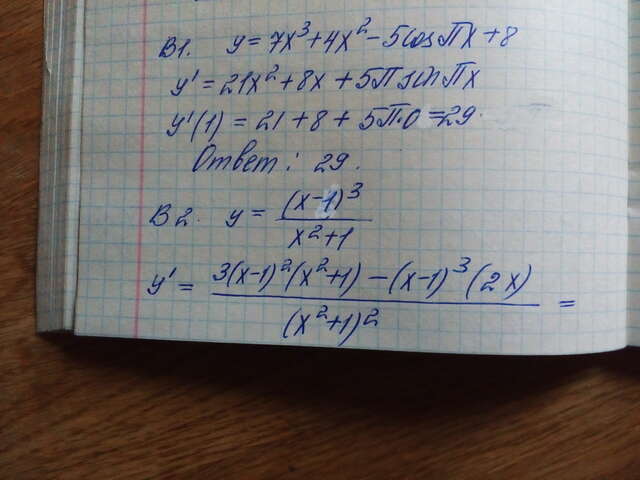 В1. y = 7x³ + 4x² - 5cosПx + 8
y' = 21x² + 8x + 5П sinПx
y'(1) = 21 + 8 + 5П·0 = 29.
Ответ: 29.
В2. y = (x-1)³ / x²+1
y' = 3(x-1)²(x²+1) - (x-1)³(2x) / (x²+1)² =